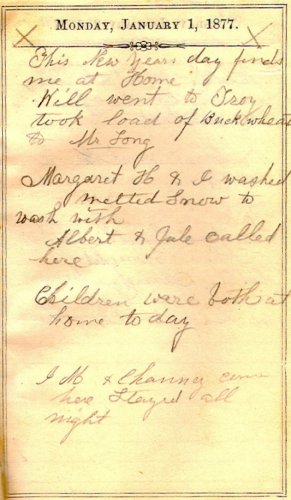 MONDAY, JANUARY 1, 1877.
This New Years day finds
me at Home
Kill went to Troy
took load of Buckwheat
to Mr Long
Margaret H & I washed
melted Snow to
wash with
Albert & Jule called
here
Children were both at
home to day
I M & Channey came
here Stayed all
night